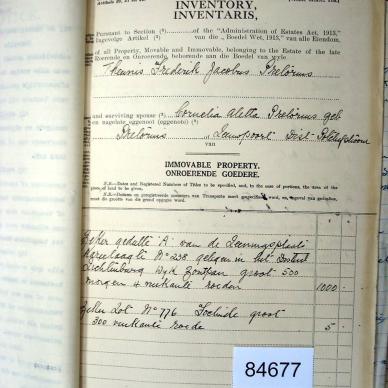 INVENTORY,
INVENTARIS,
Pursuant to Section (¹) of the "Administration of Estates Act, 1913,"
Ingevolge Artikel (¹) van die „Boedel Wet, 1913," van alle Eiendom,
of all Property, Movable and Immovable, belonging to the Estate of the late
Roerende en Onroerende, behorende aan die Boedel van wyle
Theunis Frederik Jacobus Pretorius
and surviving spouse (²) Cornelia Aletta Pretorius geb
en nagelate eggenoot (eggenote) (²)
Pretorius Leeuwpoort Dist Potchefstroom
van
IMMOVABLE PROPERTY.
ONROERENDE GOEDERE.
N.B.—Dates and Registered Numbers of Titles to be specified, and, in the case of portions, the area of the
given of land to be given.
N.B.—Datums en geregistreerde nommers van Transporte moet gespesifiseerd word, en, ingeval van gedeelten,
moet die grootte van die grond opgegee word.
Zeker gedeelte "A" van de Leeningsplaats
No 238 gelegen in het District
Lichtenburg Wyk Zoutpan groot 500
morgen 4 vierkante roeden 1000
Zeker Lot No 776 groot
300 vierkante roede 5
84677